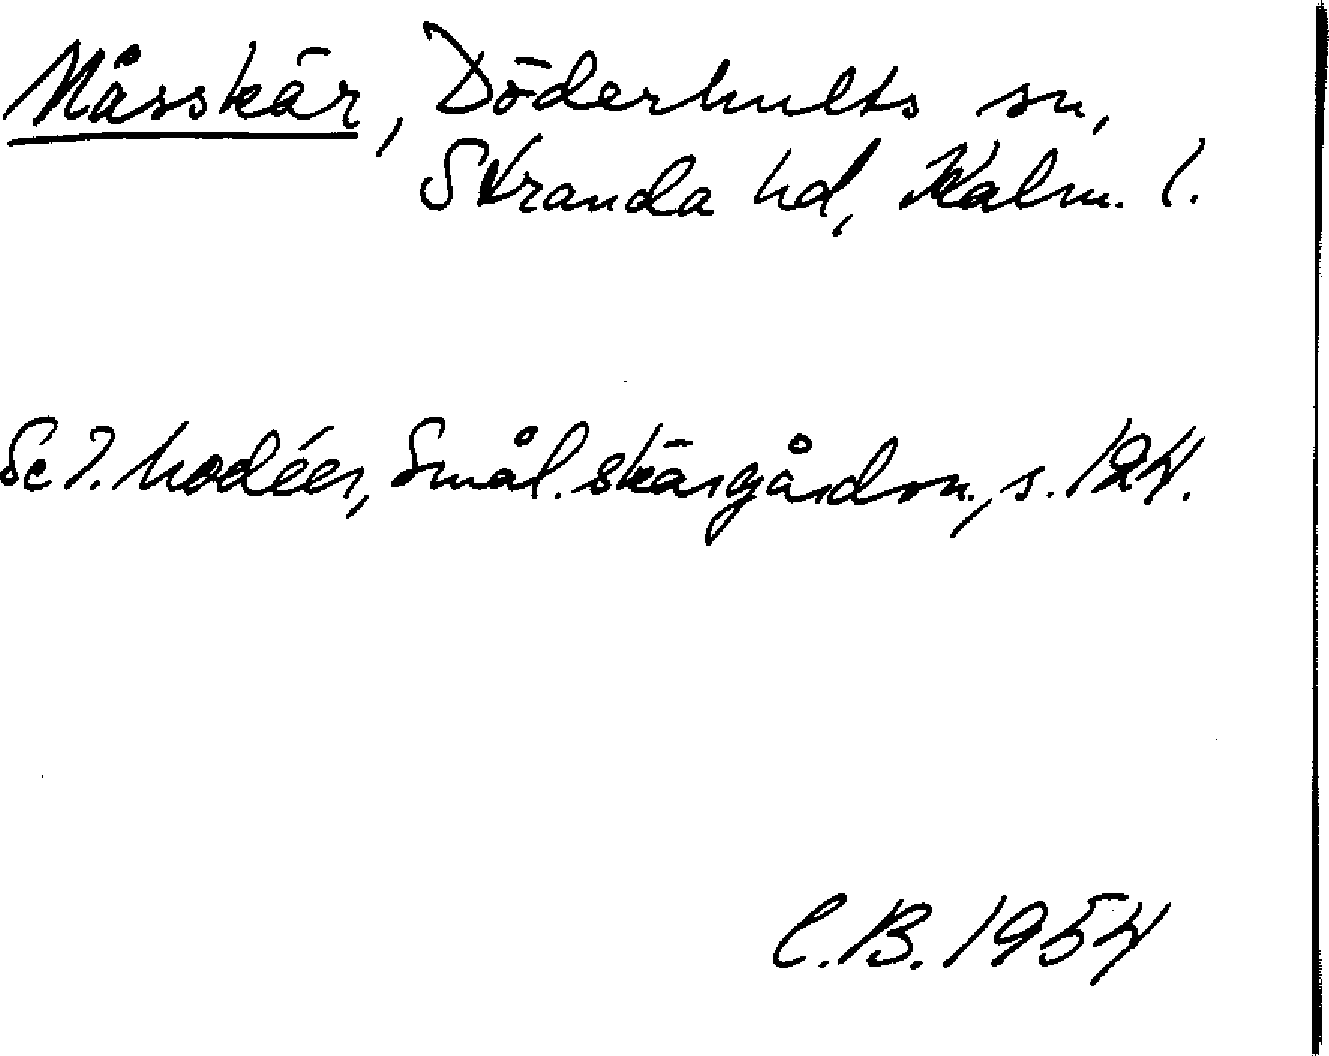 Måsskär, Döderhults sn,
Stranda hd, Kalm. l.
Se I. Modéer, Smål. skärgårdsn., s. 124.
C.B. 1954